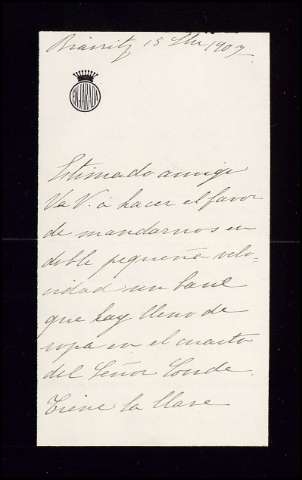 Biarritz 15 Sbre 1907
Estimado amigo
Va V. á hacer el favor
de mandarnos en
doble pequeña velo-
cidad un baul
que hay lleno de
ropa en el cuarto
del Señor Conde.
Tiene la llave